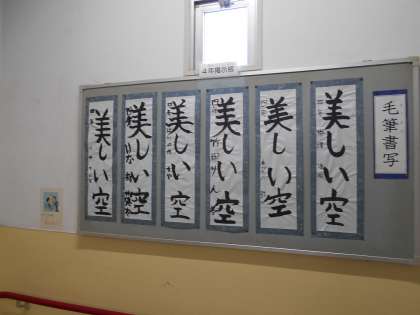 4年掲示板
毛筆書写
美しい空
美しい空
美しい空
美しい空
美しい空
美しい空